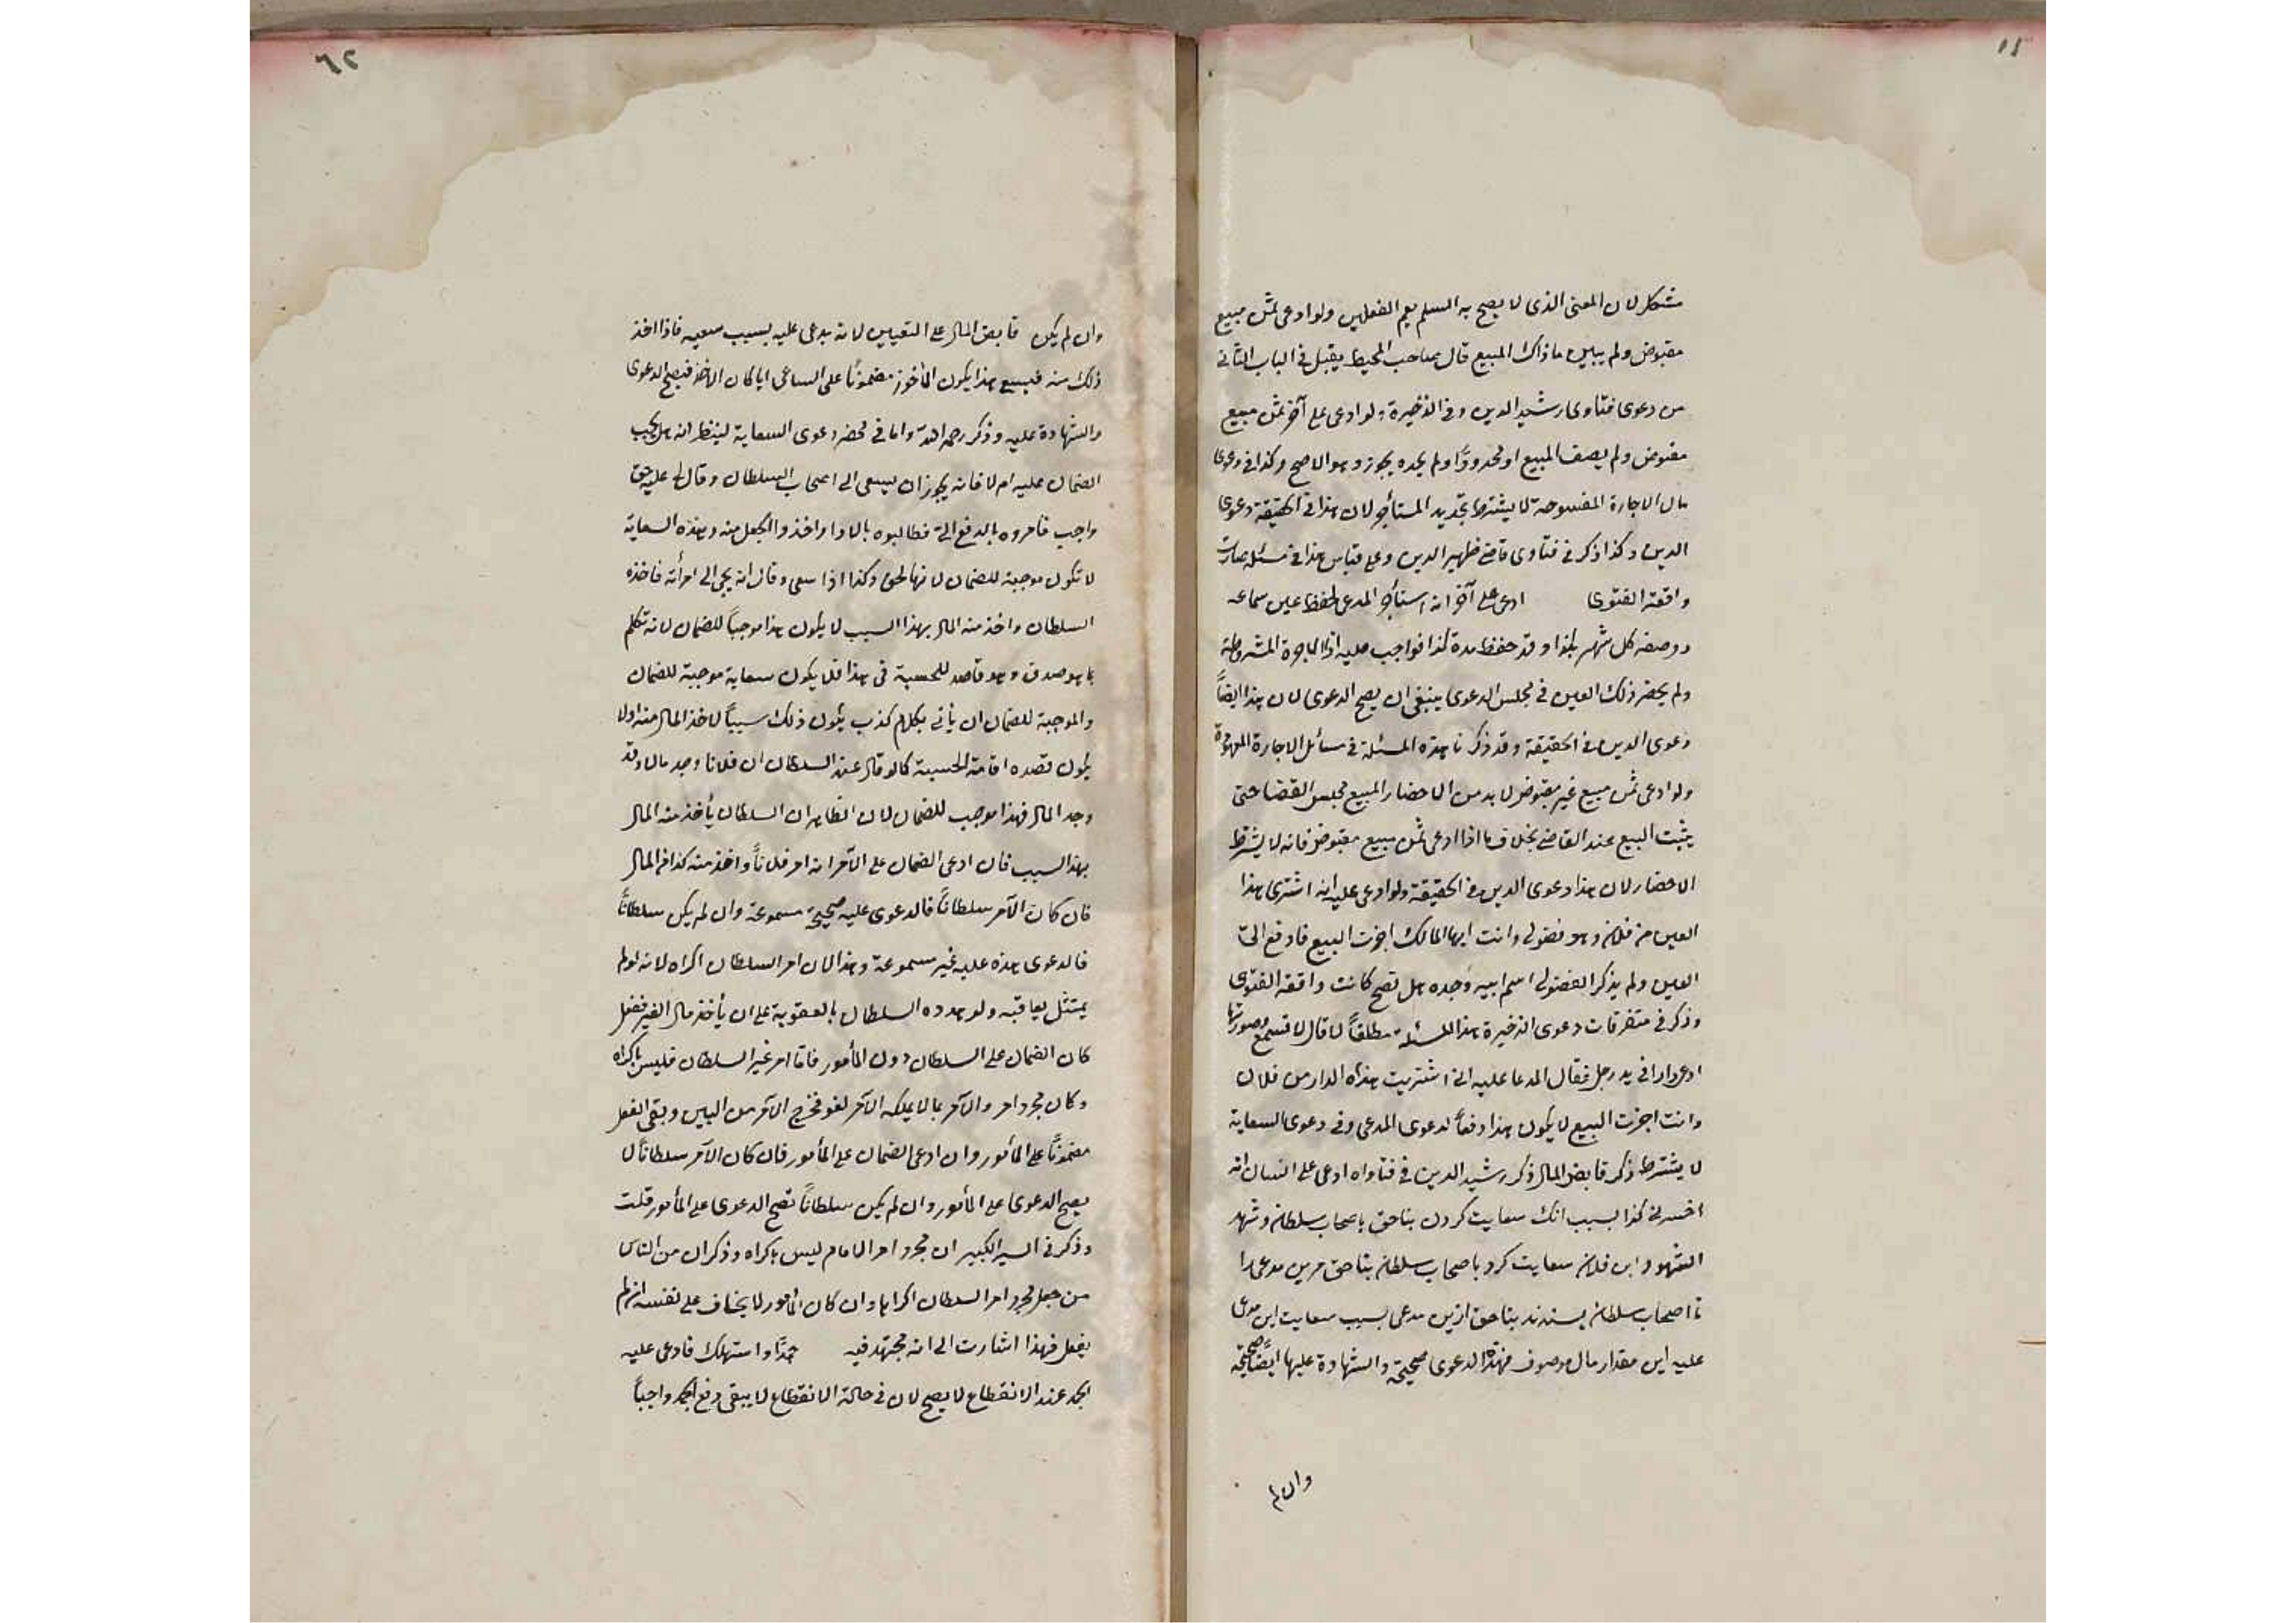 مشكل لان المعنى الذى لا يصح به السلم يعم الفصلين ولو ادعى ثمن مبيع
مقبوض ولم يبين ماذاك المبيع قال صاحب المحيط يقبل فى الباب الثانى
من دعوى فتاوى رشيد الدين وفى الذخيرة ولو ادعى على آخر ثمن مبيع
مقبوض ولم يصف المبيع او محدودًا ولم يحده يجوز وهو الاصح وكذا فى دعوى
مال الاجارة المفسوخة لا يشترط تحديد المستأجر لان هذا فى الحقيقة دعوى
الدين وكذا ذكر فى فتاوى قاضى ظهير الدين وعلى قياس هذا فى مسئلة صارت
واقعة الفتوى ادعى على آخر انه استأجر المدعى لحفظ عين سماه
ووصفه كل شهر بكذا وقد حفظ مدة كذا فواجب عليه اداء الاجرة المشروطة
ولم يحضر ذلك العين فى مجلس الدعوى ينبغى ان يصح الدعوى لان هذا ايضًا
دعوى الدين فى الحقيقة وقد ذكرنا هذه المسئلة فى مسائل الاجارة
ولو ادعى ثمن مبيع غير مقبوض لا بد من الاحضار المبيع مجلس القضا حتى
يثبت البيع عند القاضى بخلاف ما اذا ادعى ثمن مبيع مقبوض فانه لا يشترط
الاحضار لان هذا دعوى الدين فى الحقيقة ولو ادعى عليه انه اشترى هذا
العين من فلان وهو فضولى وانت ايها المالك اجزت البيع فادفع الىّ
العين ولم يذكر الفضولى اسم ابيه وجده هل تصح كانت واقعة الفتوى
وذكر فى متفرقات دعوى الذخيرة هذا المسئلة مطلقًا لا قال لا تسمع وصورتها
ادعى دارا فى يد رجل فقال المدعا عليه انى اشتريت هذه الدار من فلان
وانت اجزت البيع لا يكون هذا دفعًا لدعوى المدعى وفى دعوى السعاية
لا يشترط ذكر قابض المال ذكر رشيد الدين فى فتاواه ادعى على انسان انه
اخسرنى كذا بسبب انك سعايت كردن بناحق باصحاب سلطان وشهد
الشهود ابن فلان سعايت كرد باصحاب سلطان بناحق مرين مدعى را
تا اصحاب سلطان بستدند بناحق ازين مدعى بسبب سعايت اين مدعى
عليه اين مقدار مال موصوف فهذه الدعوى صحيحة والشهادة عليها ايضًا صحيحة
وان لم
٦٢
وان لم يكن قابض المال على التعيين لانه يدعى عليه بسبب سعيه فاذا اخذ
ذلك منه فبسبع هذا يكون المأخوذ مضمونًا على الساعى ايا كان الاخذ فيصح الدعوى
والشهادة عليه وذكر رحمه الله واما فى محضر دعوى السعاية لينظر انه هل يجب
الضمان عليه ام لا فانه يجوز ان يسعى الى اصحاب السلطان وقال لى عليه حق
واجب فامروه بالدفع الىّ فطالبوه بالادا واخذوا الجعل منه وهذه السعاية
لا تكون موجبة للضمان لانها لحق وكذا اذا سعى وقال انه يجئ الى امرأته فاخذه
السلطان واخذ منه المال بهذا السبب لا يكون هذا موجبًا للضمان لانه تكلم
بما هو صدق وهو قاصد للحسبة فى هذا فلا يكون سعاية موجبة للضمان
والموجبة للضمان ان يأتى بكلام كذب يكون ذلك سببًا لاخذ المال منه اولا
يكون قصده اقامة الحسبة كما لو قال عند السلطان ان فلانا وجد مالا وقد
وجد المال فهذا موجب للضمان لان الظاهر ان السلطان يأخذ منه المال
بهذا السبب فان ادعى الضمان على الآمر انه امر فلانًا واخذ منه كذا من المال
فان كان الآمر سلطانًا فالدعوى عليه صحيحة مسموعة وان لم يكن سلطانًا
فالدعوى هذه عليه غير مسموعة وهذا لان امر السلطان اكراه لانه لو لم
يمتثل يعاقبه ولو هدده السلطان بالعقوبة على ان يأخذ مال الغير ففعل
كان الضمان على السلطان دون المأمور فاما امر غير السلطان فليس باكراه
وكان مجرد امر والآمر بما لا يملكه الآمر لغو فخرج الآمر من البين وبقى الفعل
مضمونًا على المأمور وان ادعى الضمان على المأمور فان كان الآمر سلطانًا لا
يصح الدعوى على المأمور وان لم يكن سلطانًا تصح الدعوى على المأمور قلت
وذكر فى السير الكبير ان مجرد امر الامام ليس باكراه وذكر ان من الناس
من جعل مجرد امر السلطان اكراها وان كان المأمور لا يخاف على نفسه ان لم
يفعل فهذا اشارت الى انه مجتهد فيه جمدًا واستهلك فادعى عليه
الجمد عند الانقطاع لا يصح لان فى حالة الانقطاع لا يبقى دفع الجمد واجبًا